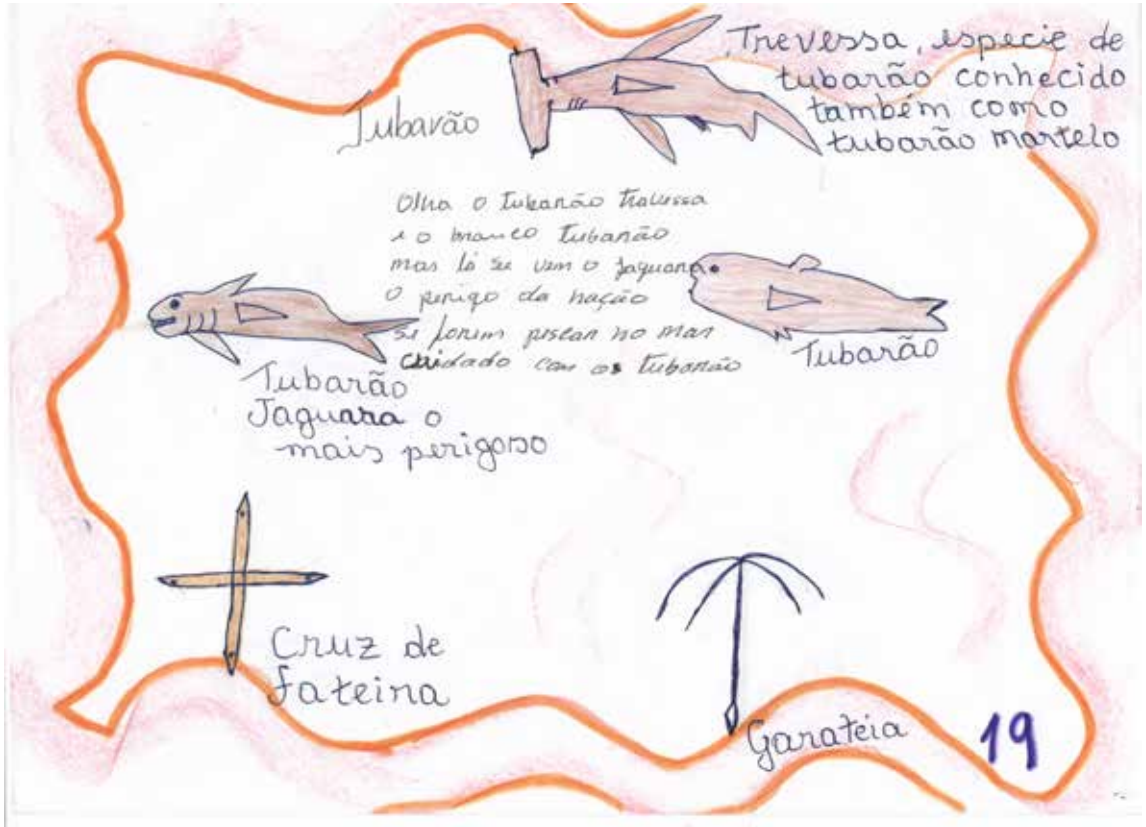 Tubarão
Trevessa, especie de
tubarão conhecido
também como
tubarão martelo
Olha o tubarão travessa
e o branco tubarão
mas lá se vem o Jaguara
O perigo da nação
Se forem pescar no mar
cuidado com os tubarão
Tubarão
Jaguara o
mais perigoso
Tubarão
Cruz de
fateira
Garatéia
19